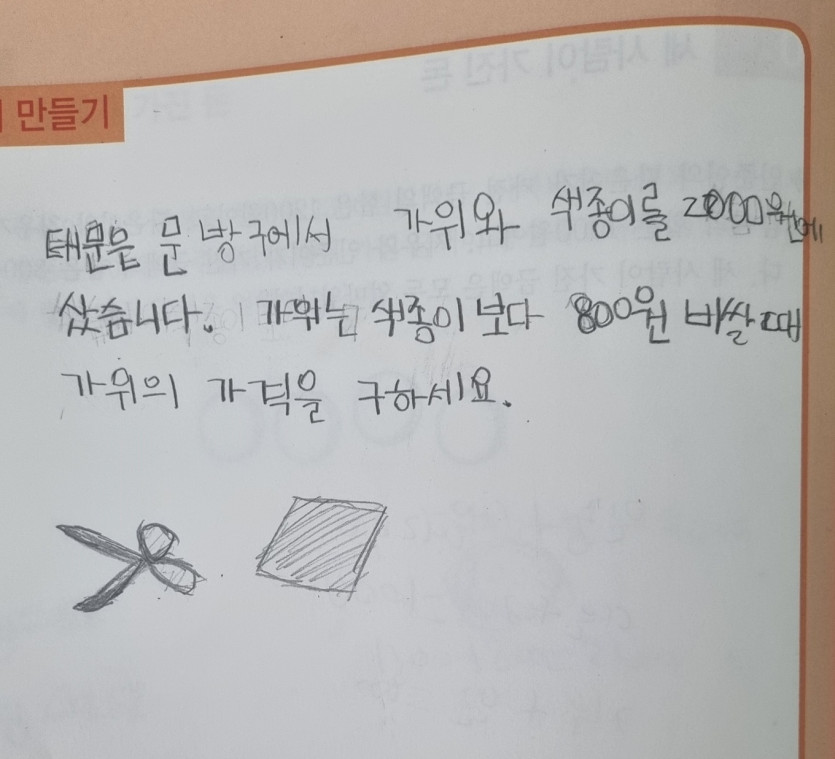 만들기
태문은 문방구에서 가위와 색종이를 2000원에
샀습니다. 가위는 색종이보다 800원 비쌀 때
가위의 가격을 구하세요.